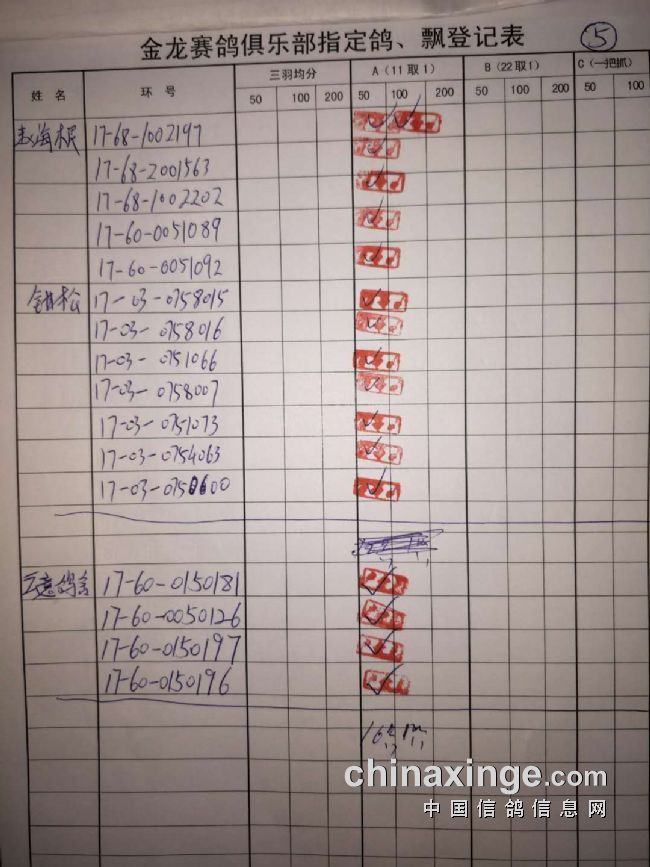 金龙赛鸽俱乐部指定鸽、飘登记表 ⑤
姓名 环号 三羽均分 A（11取1） B（22取1） C（一把抓）
50 100 200 50 100 200 50 100 200 50 100
17-68-1002197
17-68-2001563
17-68-1002202
17-60-0051089
17-60-0051092
17-03-0758015
17-03-0758016
17-03-0751066
17-03-0758007
17-03-0751073
17-03-0754063
17-03-0750600
17-60-0150181
17-60-0050126
17-60-0150197
17-60-0150196
chinaxinge.com
中国信鸽信息网